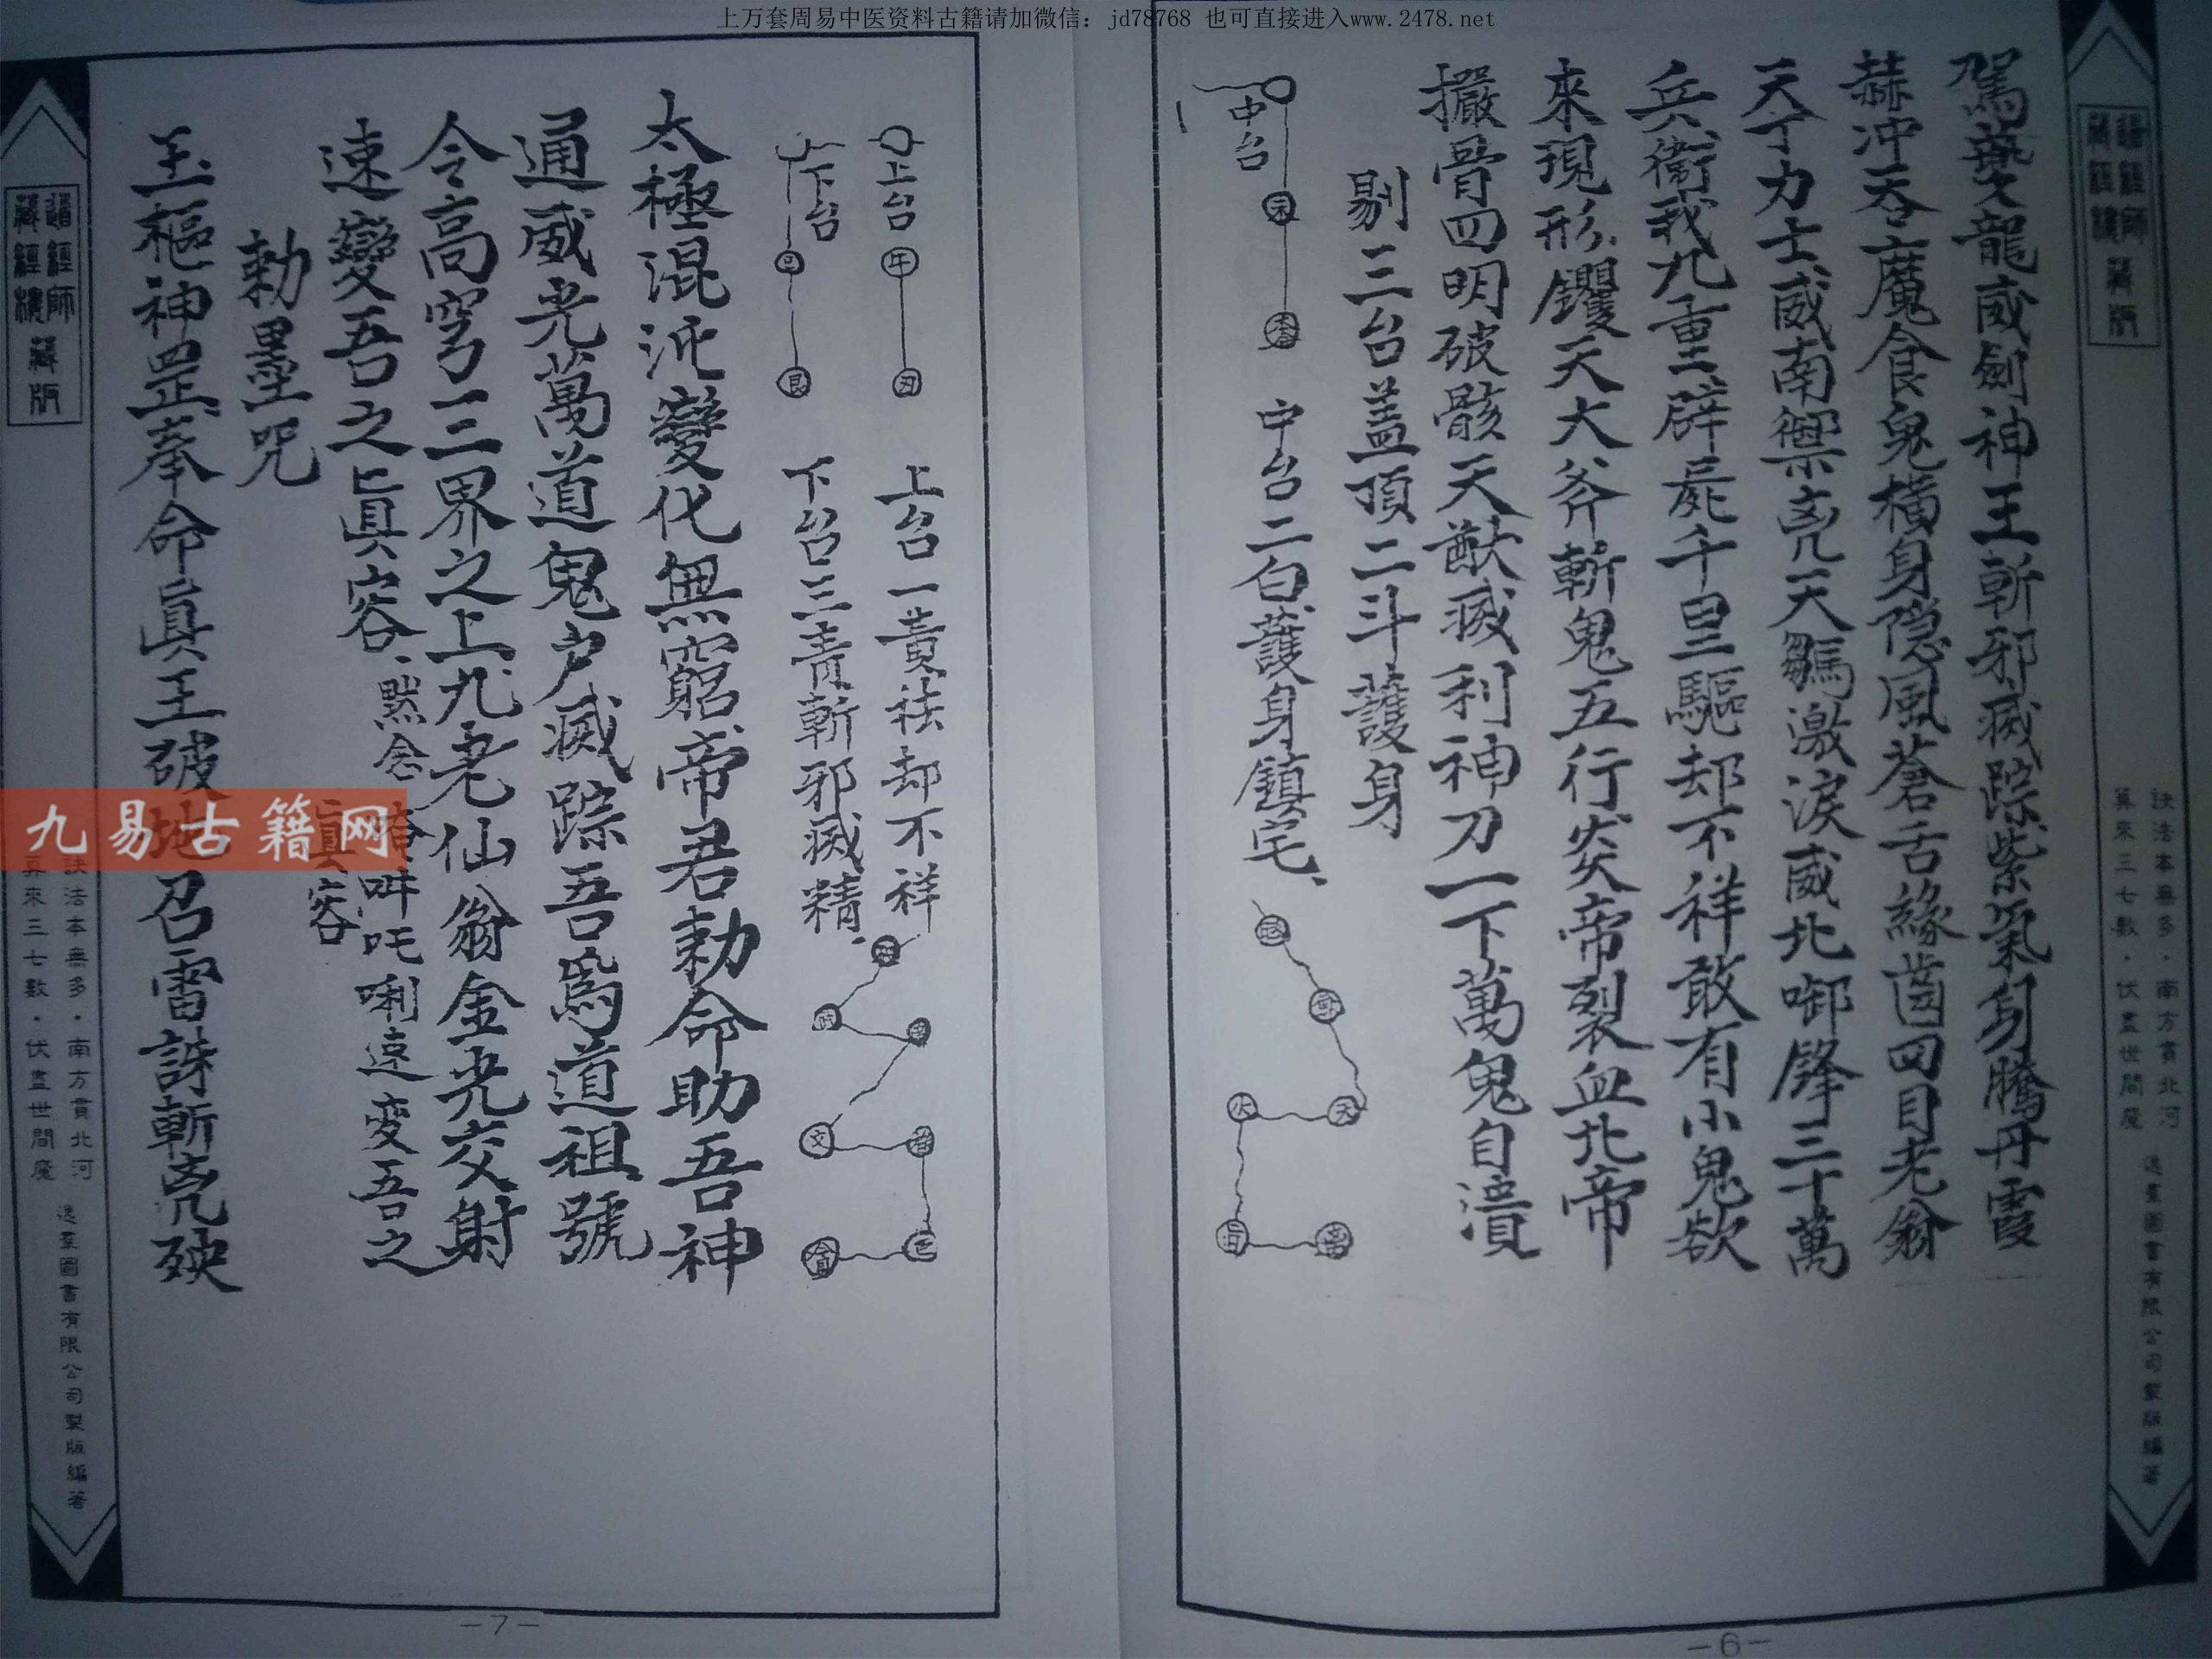 上万套周易中医资料古籍请加微信：jd78768 也可直接进入www.2478.net
道經師
藏經樓
藏版
訣法本無多·南方貫北河
算來三七數·伏盡世間魔
逸羣圖書有限公司製版編著
駕龍威劍神王斬邪滅踪紫氣騰丹霞
赫冲天吞魔食鬼橫身隐風蒼舌緣齒四目老翁
天丁力士威南禦兇天騶激淚威北啣鋒三十萬
兵衛我九重辟屍千里驅却不祥敢有小鬼欲
來現形钁天大斧斬鬼五行炎帝裂血北帝
撮骨四明破骸天猷滅利神刀一下萬鬼自潰
剔三台盖頂二斗護身
中台
中台二白護身鎮宅、
天
-6-
上台
午
丑
上台一黃祛却不祥
下台
艮
下台三青斬邪滅精、
文
太極混沌變化無窮、帝君勅命助吾神
通威光萬道鬼户滅踪吾為道祖號
令高穹三界之上九老仙翁金光交射
速變吾之真容、默念
吽吒唎速变吾之
真容
勅墨咒
玉樞神罡奉命真王破地召雷誅斬兇殃
九易古籍网
道經師
藏經樓
藏版
訣法本無多·南方貫北河
算來三七數·伏盡世間魔
逸羣圖書有限公司製版編著
-7-